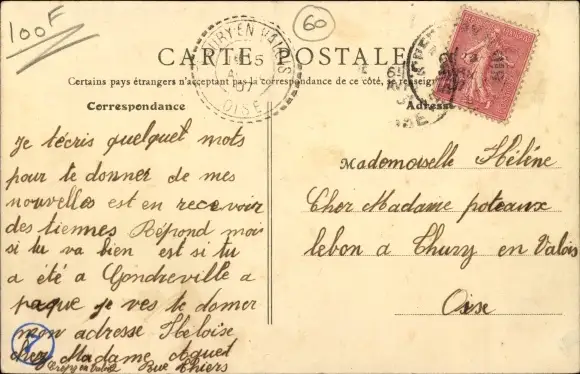 100F
60
THURY-EN-VALOIS
OISE
CARTE POSTALE
Certains pays étrangers n'acceptant pas la correspondance de ce côté, se renseigner
Correspondance
Adresse
Je técris quelquet mots
pour te donner de mes
nouvelles est en recevoir
des tiennes Répond moi
si tu va bien est si tu
a été a Gondreville a
paque je ves te donner
mon adresse Héloise
chez Madame Aguet
Crepy en Valois Rue Thiers
Mademoiselle Hélène
Cher Madame poteaux
lebon a Thury en Valois
Oise